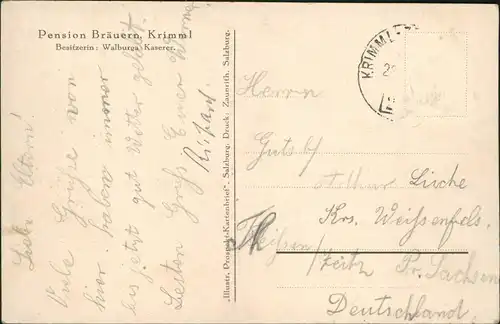 Pension Bräuern, Krimml
Besitzerin: Walburga Kaserer.
Liebe Eltern!
Viele Grüße von
hier haben immer
bis jetzt gut Wetter gehabt
Besten Gruß Euer Werner
Richard
„Illustr. Prospekt-Kartenbrief“, Salzburg. Druck: Zaunrith, Salzburg.
KRIMML
Herrn
Gutsb/
Arthur
Krs. Weißenfels
Theißen/
Zeitz Pr. Sachsen
Deutschland